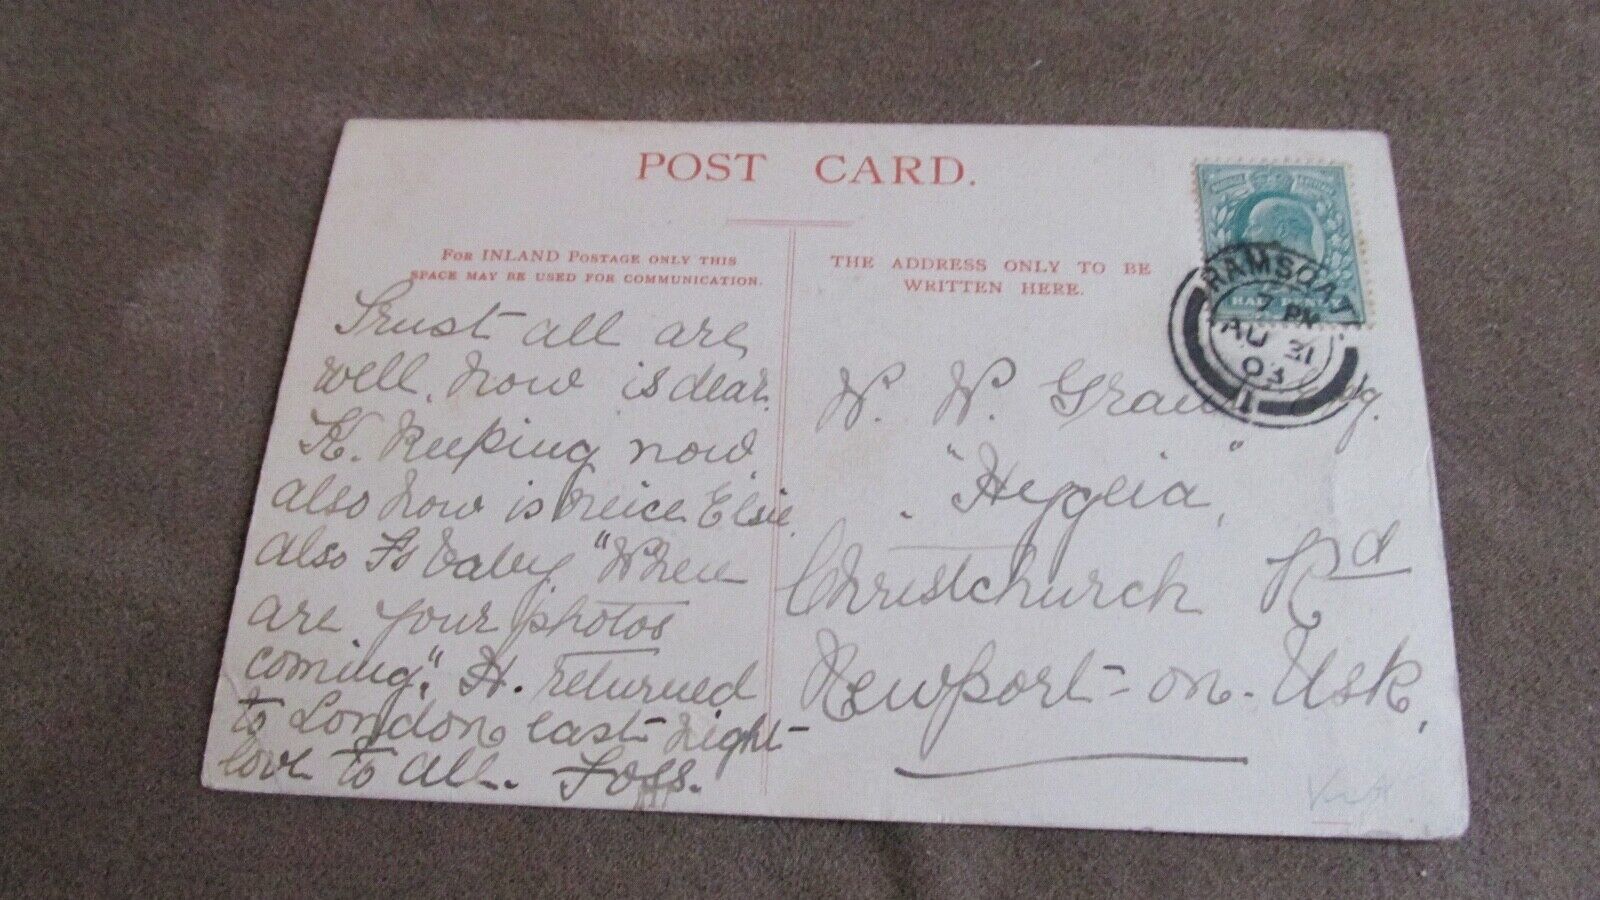 POST CARD.
For INLAND Postage only this
space may be used for communication.
THE ADDRESS ONLY TO BE
WRITTEN HERE.
Trust all are
well. how is dear
K. Keeping now
also how is neice Elsie
also baby "When
are your photos
coming". H. returned
to London last night
love to all.
HALFPENNY
RAMSGATE
7 PM
AU 31
03
1
W. W.
"Hygeia",
Christchurch Rd
Newport-on-Usk,